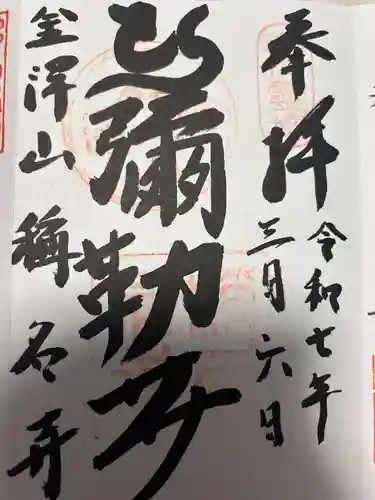 奉拝
令和七年
三月六日
彌勒
金澤山
稱名寺